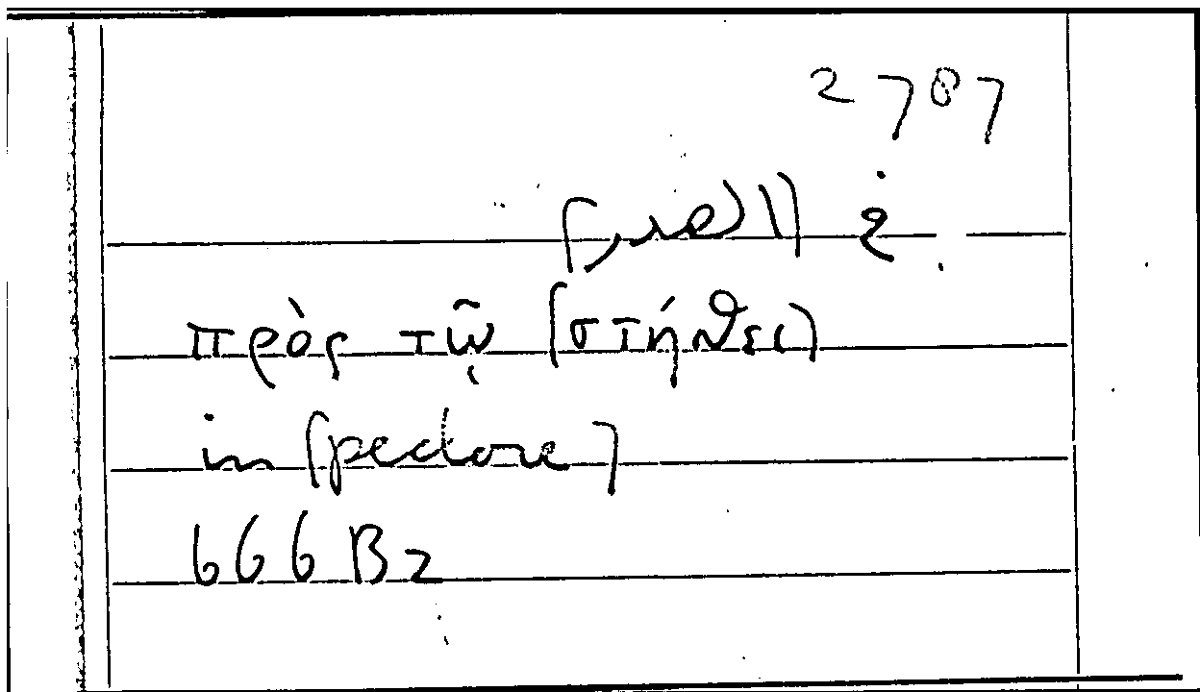 2787
في [الصدر]
πρὸς τῷ [στήθει]
in [pectore]
666 B2